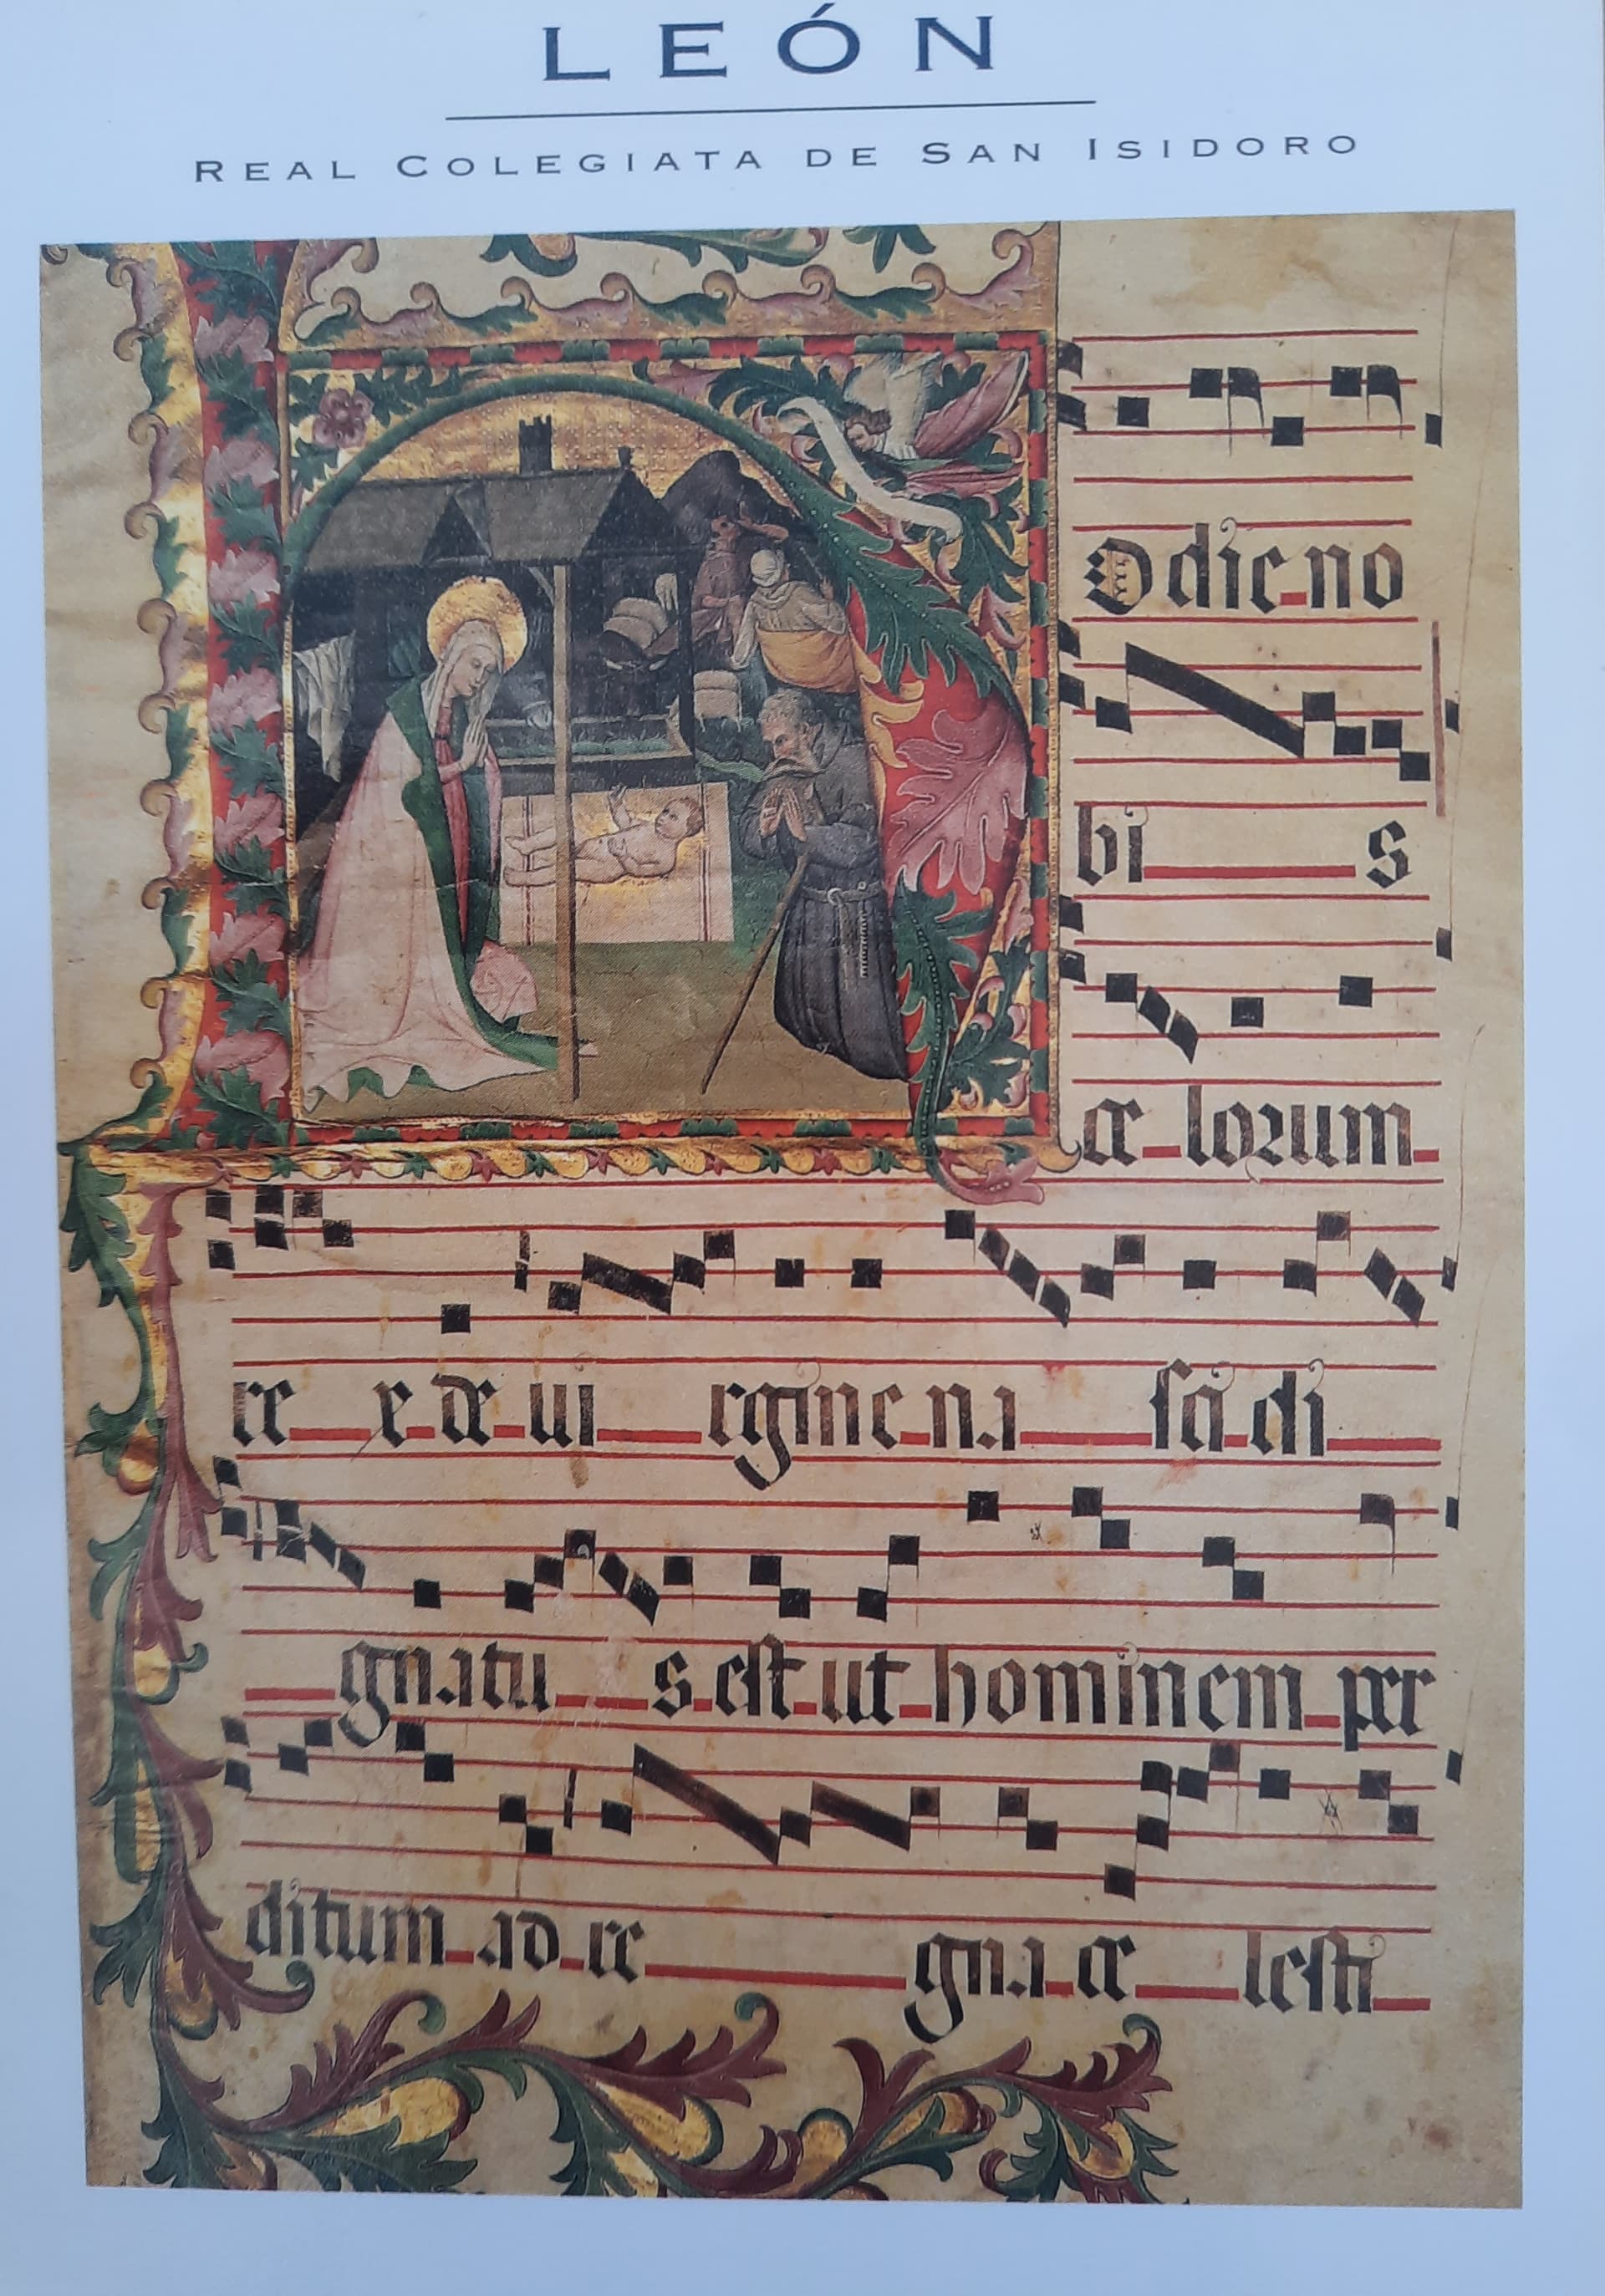 LEÓN
REAL COLEGIATA DE SAN ISIDORO
Odie no
bi s
ce lorum
re x de ui rgine na sci di
gnatu s est ut hominem per
ditum ad re gna ce lesti